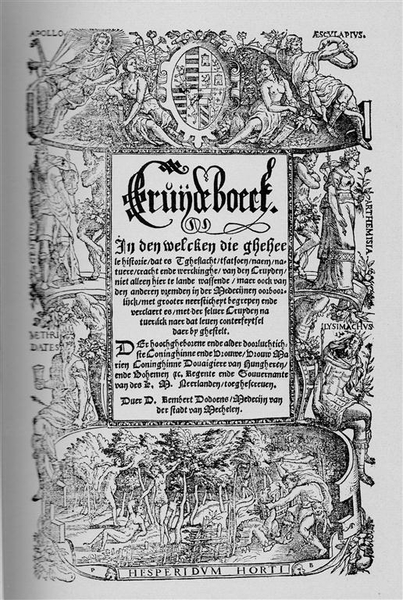 APOLLO
ÆSCULAPIUS.
Cruÿdeboeck.
In den welcken die gheheele
le historie/dat es Tgheslacht/tfatsoen/naem/na-
tuere/cracht ende werckinghe/van den Cruyden/
niet alleen hier te lande wassende/maer oock van
den anderen vremden in der Medecijnen oorboor-
lijck/met grooter neersticheyt begrepen ende
verclaert es/met der seluer Cruyden na
tuerlick naer dat leuen conterfeytsel
daer by ghestelt.
Der hoochgheborene ende alder doorluchtich-
ste Coninghinne ende Vrouwe/Vrouw Ma-
rien Coninghinne Douaigiere van Hungheren/
ende Bohemen ⁊c. Regente ende Gouuernante
van des K. M. Neerlanden/toegheschreuen.
Duer D. Rembert Dodoens/Medecijn van
der stadt van Mechelen.
ARTHEMISIA
MITHRI
DATES
LYSIMACHUS
P
B
HESPERIDVM HORTI